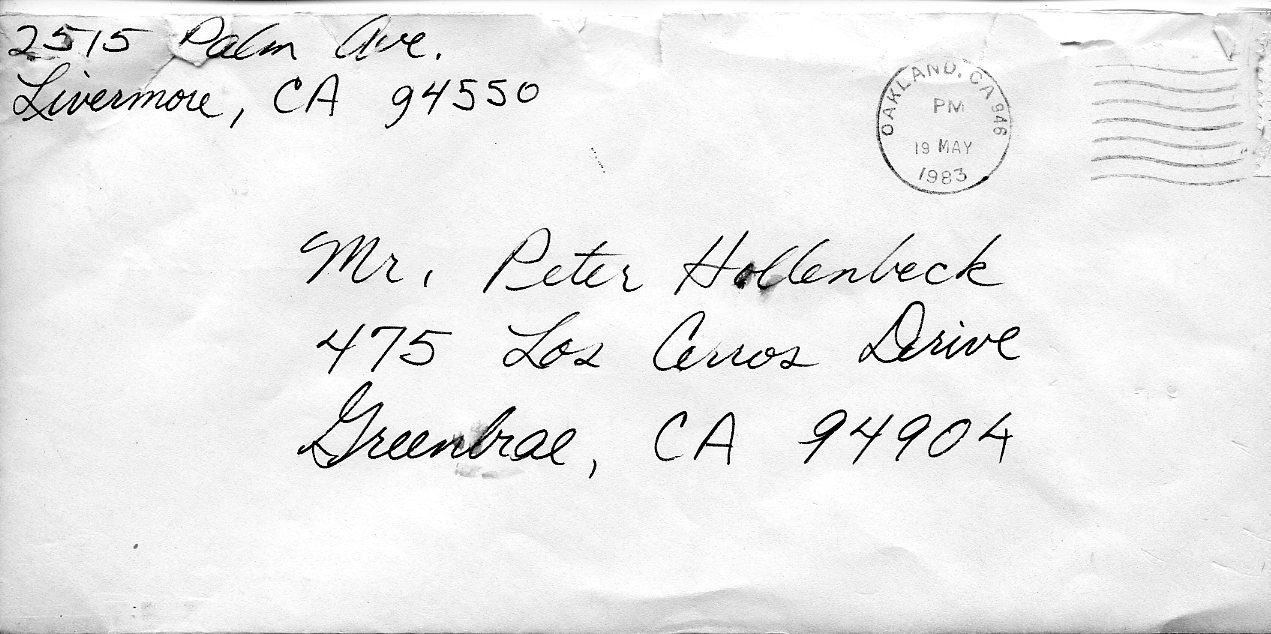 2515 Palm Ave.
Livermore, CA 94550
OAKLAND, CA 946
PM
19 MAY
1983
Mr. Peter Hollenbeck
475 Los Cerros Drive
Greenbrae, CA 94904